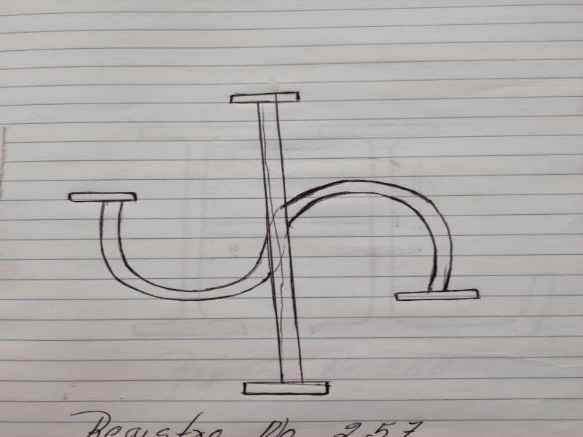 Registro No 257